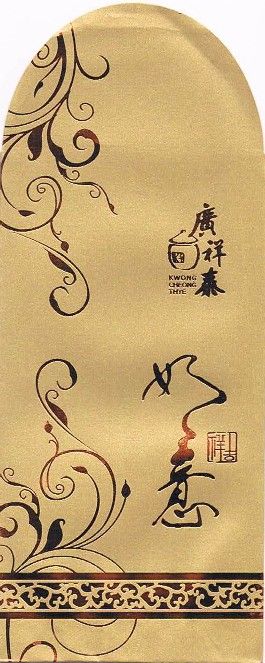 廣祥泰
KWONG
CHEONG
THYE
如意
吉祥